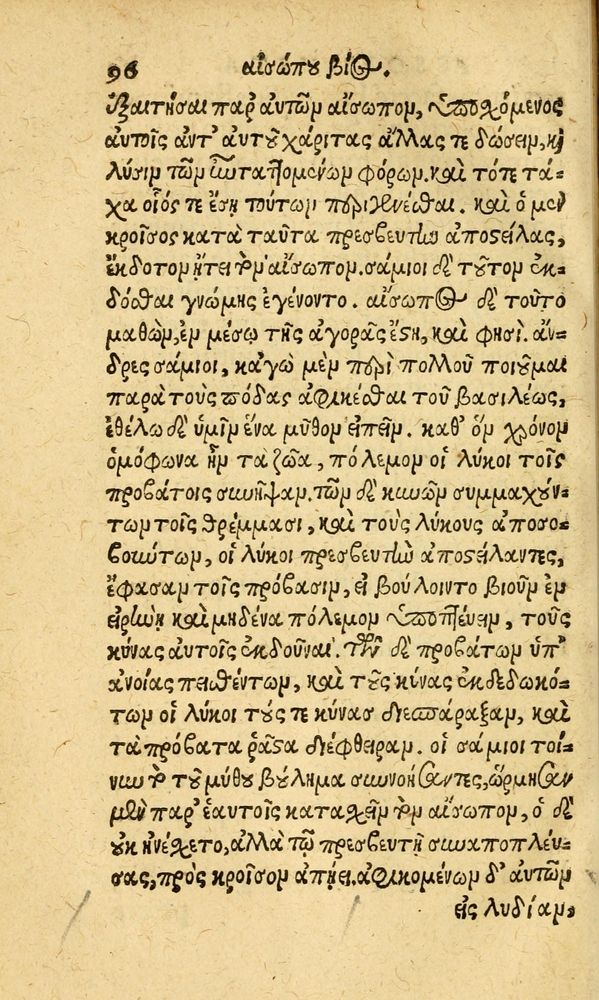 96 αἰσώπου βίος.
ἐξαιτῆσαι παρ' αὐτῶν αἴσωπον, ὑποσχόμενος
αὐτοῖς ἀντ' αὐτοῦ χάριτας ἄλλας τε δώσειν, καὶ
λύσιν τῶν ἐπιταττομένων φόρων. καὶ τότε τά-
χα οἷός τε ἔσῃ τούτων περιγενέσθαι. καὶ ὁ μὲν
κροῖσος κατὰ ταῦτα πρεσβευτὴν ἀποστείλας,
ἔκδοτον ᾔτει τὸν αἴσωπον. σάμιοι δὲ τοῦτον ἐκ-
δόσθαι γνώμης ἐγένοντο. αἴσωπος δὲ τοῦτο
μαθὼν, ἐν μέσῳ τῆς ἀγορᾶς ἔστη, καὶ φησί. ἄν-
δρες σάμιοι, κἀγὼ μὲν περὶ πολλοῦ ποιοῦμαι
παρὰ τοὺς πόδας ἀφικέσθαι τοῦ βασιλέως,
ἐθέλω δὲ ὑμῖν ἕνα μῦθον εἰπεῖν. καθ' ὃν χρόνον
ὁμόφωνα ἦν τὰ ζῶα, πόλεμον οἱ λύκοι τοῖς
προβάτοις συνῆψαν. τῶν δὲ κυνῶν συμμαχούν-
των τοῖς θρέμμασι, καὶ τοὺς λύκους ἀποσο-
βούντων, οἱ λύκοι πρεσβευτὴν ἀποστείλαντες,
ἔφασαν τοῖς πρόβασιν, εἰ βούλοιντο βιοῦν ἐν
εἰρήνῃ καὶ μηδένα πόλεμον ὑποπτεύειν, τοὺς
κύνας αὐτοῖς ἐκδοῦναι. τῶν δὲ προβάτων ὑπ'
ἀνοίας πεισθέντων, καὶ τοὺς κύνας ἐκδεδωκό-
των οἱ λύκοι τούς τε κύνας διεσπάραξαν, καὶ
τὰ πρόβατα ῥᾷστα διέφθειραν. οἱ σάμιοι τοί-
νυν τὸ τοῦ μύθου βούλημα συνοήσαντες, ὥρμησαν
μὲν παρ' ἑαυτοῖς κατασχεῖν τὸν αἴσωπον, ὁ δὲ
οὐκ ἠνέχετο, ἀλλὰ τῷ πρεσβευτῇ συναποπλεύ-
σας, πρὸς κροῖσον ἀπῄει. ἀφικομένων δ' αὐτῶν
εἰς λυδίαν,